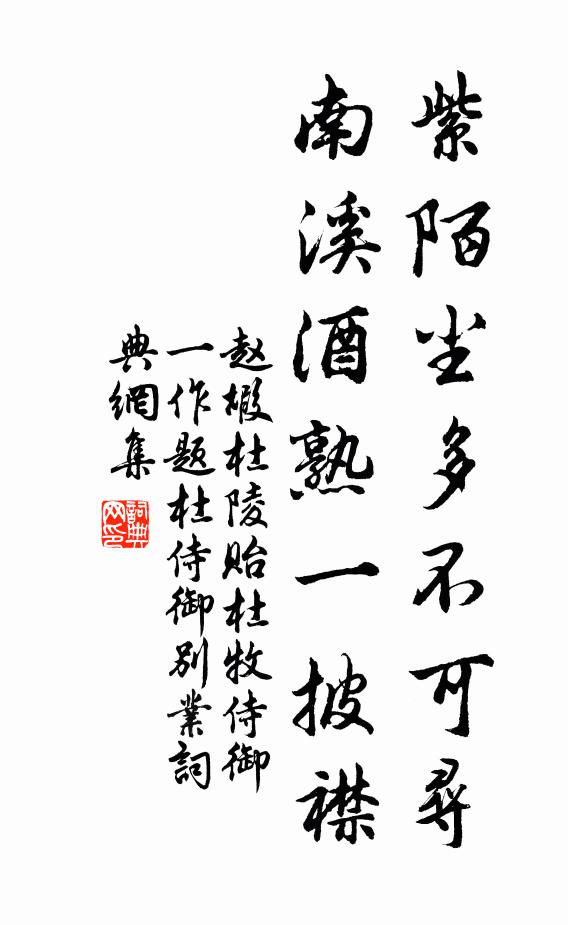 紫陌尘多不可尋
南溪酒熟一披襟
赵嘏杜陵貽杜牧侍御
一作题杜侍御别業詞
典網集
詞典网印